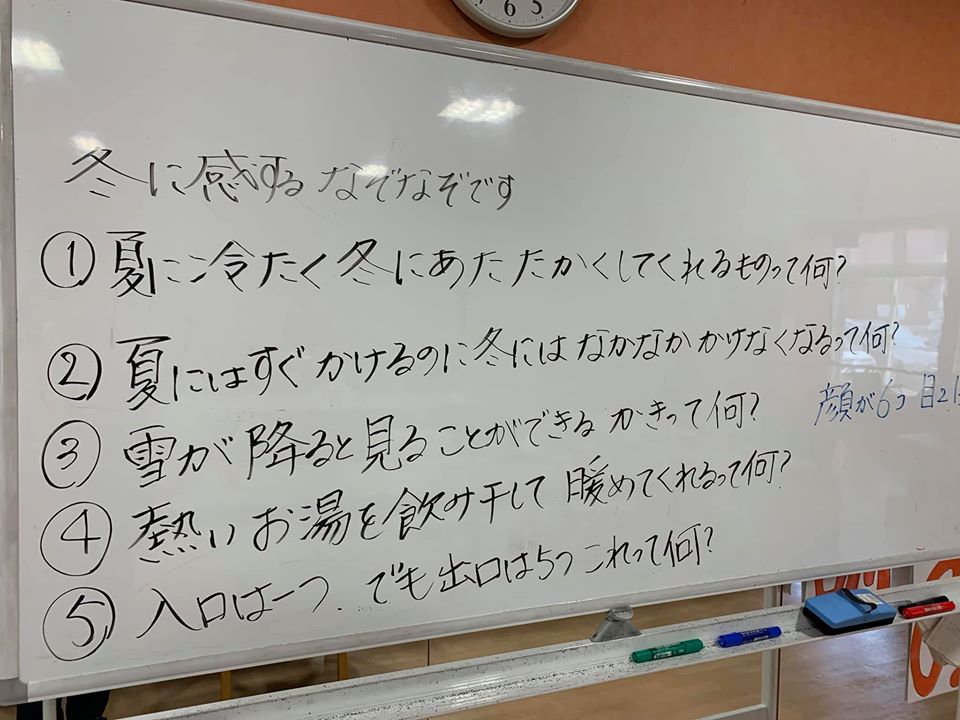 6 5
冬に感するなぞなぞです
① 夏に冷たく冬にあたたかくしてくれるものって何?
② 夏にはすぐかけるのに冬にはなかなかかけなくなるって何?
顔が6つ 目21
③ 雪が降ると見ることができるかきって何?
④ 熱いお湯を飲み干して暖めてくれるって何?
⑤ 入口は一つ.でも出口は5つこれって何?